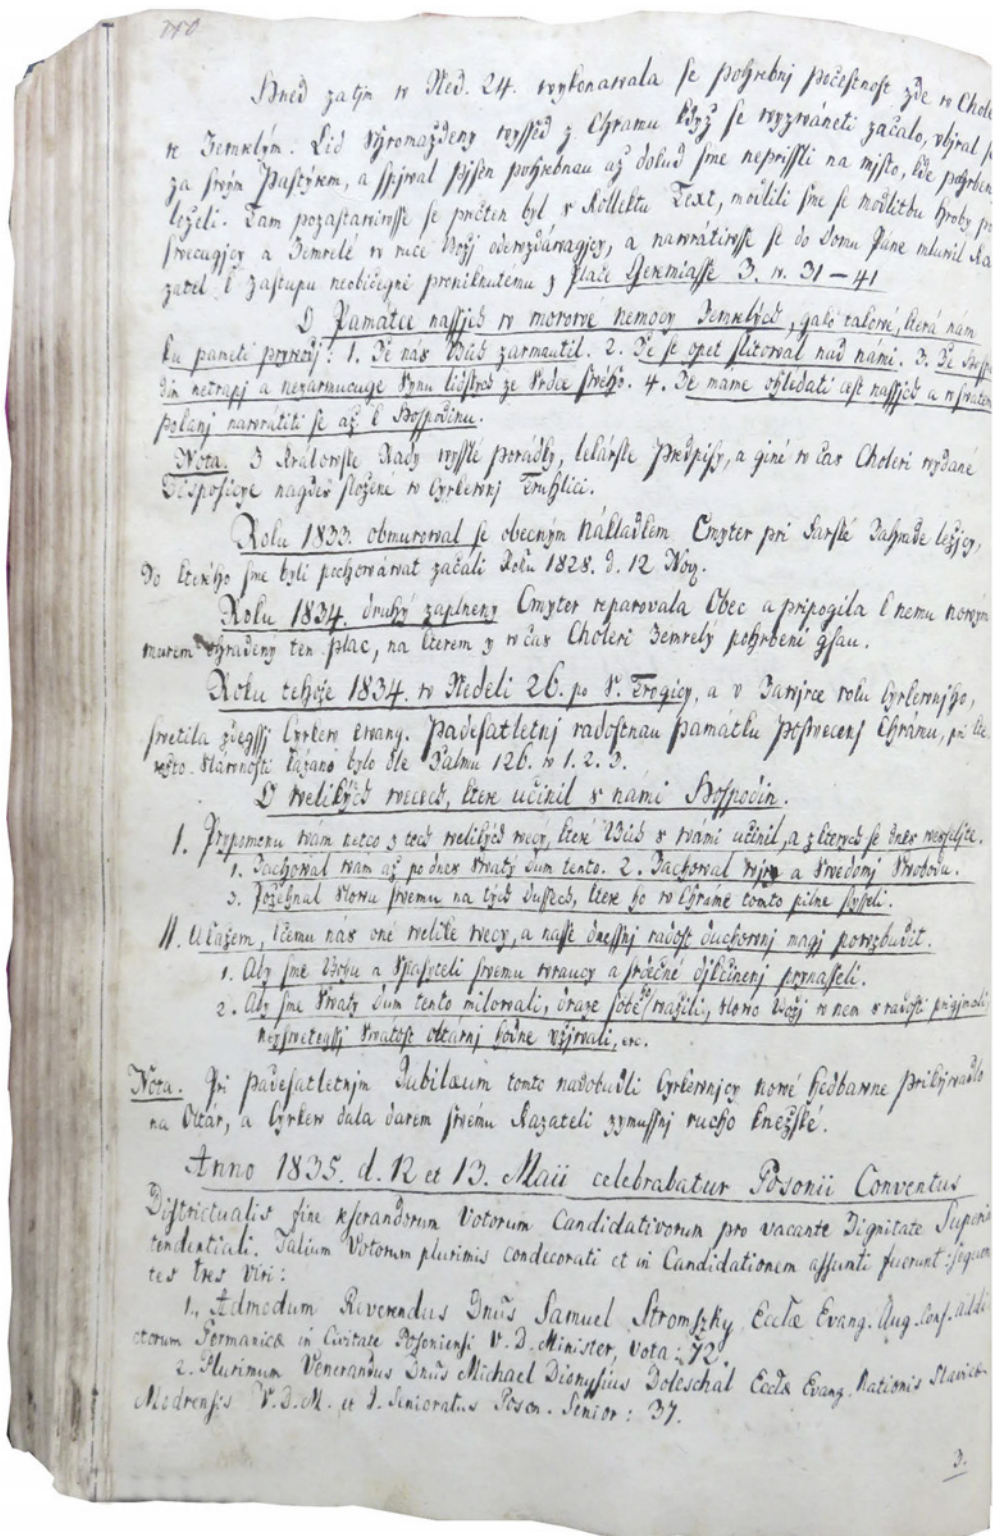 Hned zatjm w Ned. 24. wykonawala se pohrebnj počestnost zde w Chole
re Zemrelým. Lid shromazdeny wyssed z Chramu když se wyzwáneti začalo, vbjral se
za swým Pastýrem, a spjwal pjsen pohrebnau až dokud sme neprissli na mjsto, kde pohrbeni
leželi. Tam pozastawiwsse se pričten byl s Kollektu Text, modlili sme se modlitbu hroby po
swecugjcy a Zemrelé w ruce Božj oderozdáwagjcy, a nawrátiwsse se do Domu Páne mluwil Ka
zatel k zastupu neobičegne proniknutému z Pláče Geremiásse 3. w. 31 – 41
O Památce nassjch w morowé nemocy Zemrelých, gako takowé, která nám
ku pameti prywodj: 1. Že nás Buh zarmautil. 2. Že se opet slitowal nad námi. 3. Že Hospo
din netrapj a nezarmucuge Synu lidských ze Srdce swého. 4. Že máme ohledati cest nassjch a w swatem
pokanj nawrátiti se až k Hospodinu.
Nota. Z Králowske Rady wysslé porádky, lekárske Predpisy, a giné w čas Choleri wydané
Disposicye nagdeš složené w Cyrkewnj Truhlici.
Roku 1833. obmurowal se obecným Nákladkem Cmyter pri Farské Zahrade ležjcy,
do kterého sme byli pochowáwat začali Roku 1828. d. 12 Nov.
Roku 1834. druhý zaplneny Cmyter reparowala Obec a pripogila k nemu nowým
murem ohradený ten plac, na kterem y w čas Choleri Zemrelý pohrbeni gsau.
Roku tehože 1834. w Nedeli 26. po S. Trogicy, a v Zawjrce roku Cyrkewnjho,
swetila zdegssj Cyrkew ewang. Padesatletnj radostnau památku Posweceni Chrámu, pri kte
režto Slawnosti kázano bylo dle Žalmu 126. w 1. 2. 3.
O welikých wecech, ktere učinil s námi Hospodin.
I. Prypomenu wám netco z tech welikých wecy, které Buh s wámi učinil, a z kterych se dnes weseljte.
1. Zachowal wám až po dnes Swatý dum tento. 2. Zachowal Wjru a Swedomj Swobodu.
3. Požehnal Slowu swemu na tých Dussech, ktere ho w Chráme tomto pilne slysseli.
II. Ukažem, k čemu nás oné welike wecy, a nasse dnessnj radost duchownj magj powzbudit.
1. Aby sme Bohu a Spasyteli swemu wraucy a srdečné djkčinenj prynasseli.
2. Aby sme Swaty dum tento milowali, draze sobe ho wažili, Slowo Božj w nem s radostj prigjmali,
neyswetegssj Swátost oltárnj hodne vžjwali, etc.
Nota. Pri padesatletnjm Jubilæum tomto nadobudli Cyrkewnjcy nowé hedbawne prikrýwadlo
na Oltár, a Cyrkew dala darem swému Kazateli zymussnj rucho knežské.
Anno 1835. d. 12 et 13. Maii celebrabatur Posonii Conventus
Districtualis fine eserandorum Votorum Candidativorum pro vacante Dignitate Superin
tendentiali. Talium Votorum plurimis condecorati et in Candidationem assumti fuerunt sequen
tes tres Viri:
1., Admodum Reverendus Dnus Samuel Stromszky Ecclæ Evang. Aug. Conf. Addi
ctorum Germanicæ in Civitate Posoniensi V. D. Minister, Vota: 72.
2. Plurimum Venerandus Dnus Michael Dionysius Doleschal Ecclæ Evang. Nationis Slavicæ
Modrensis V. D. M. et I. Senioratus Poson. Senior: 37.
3.